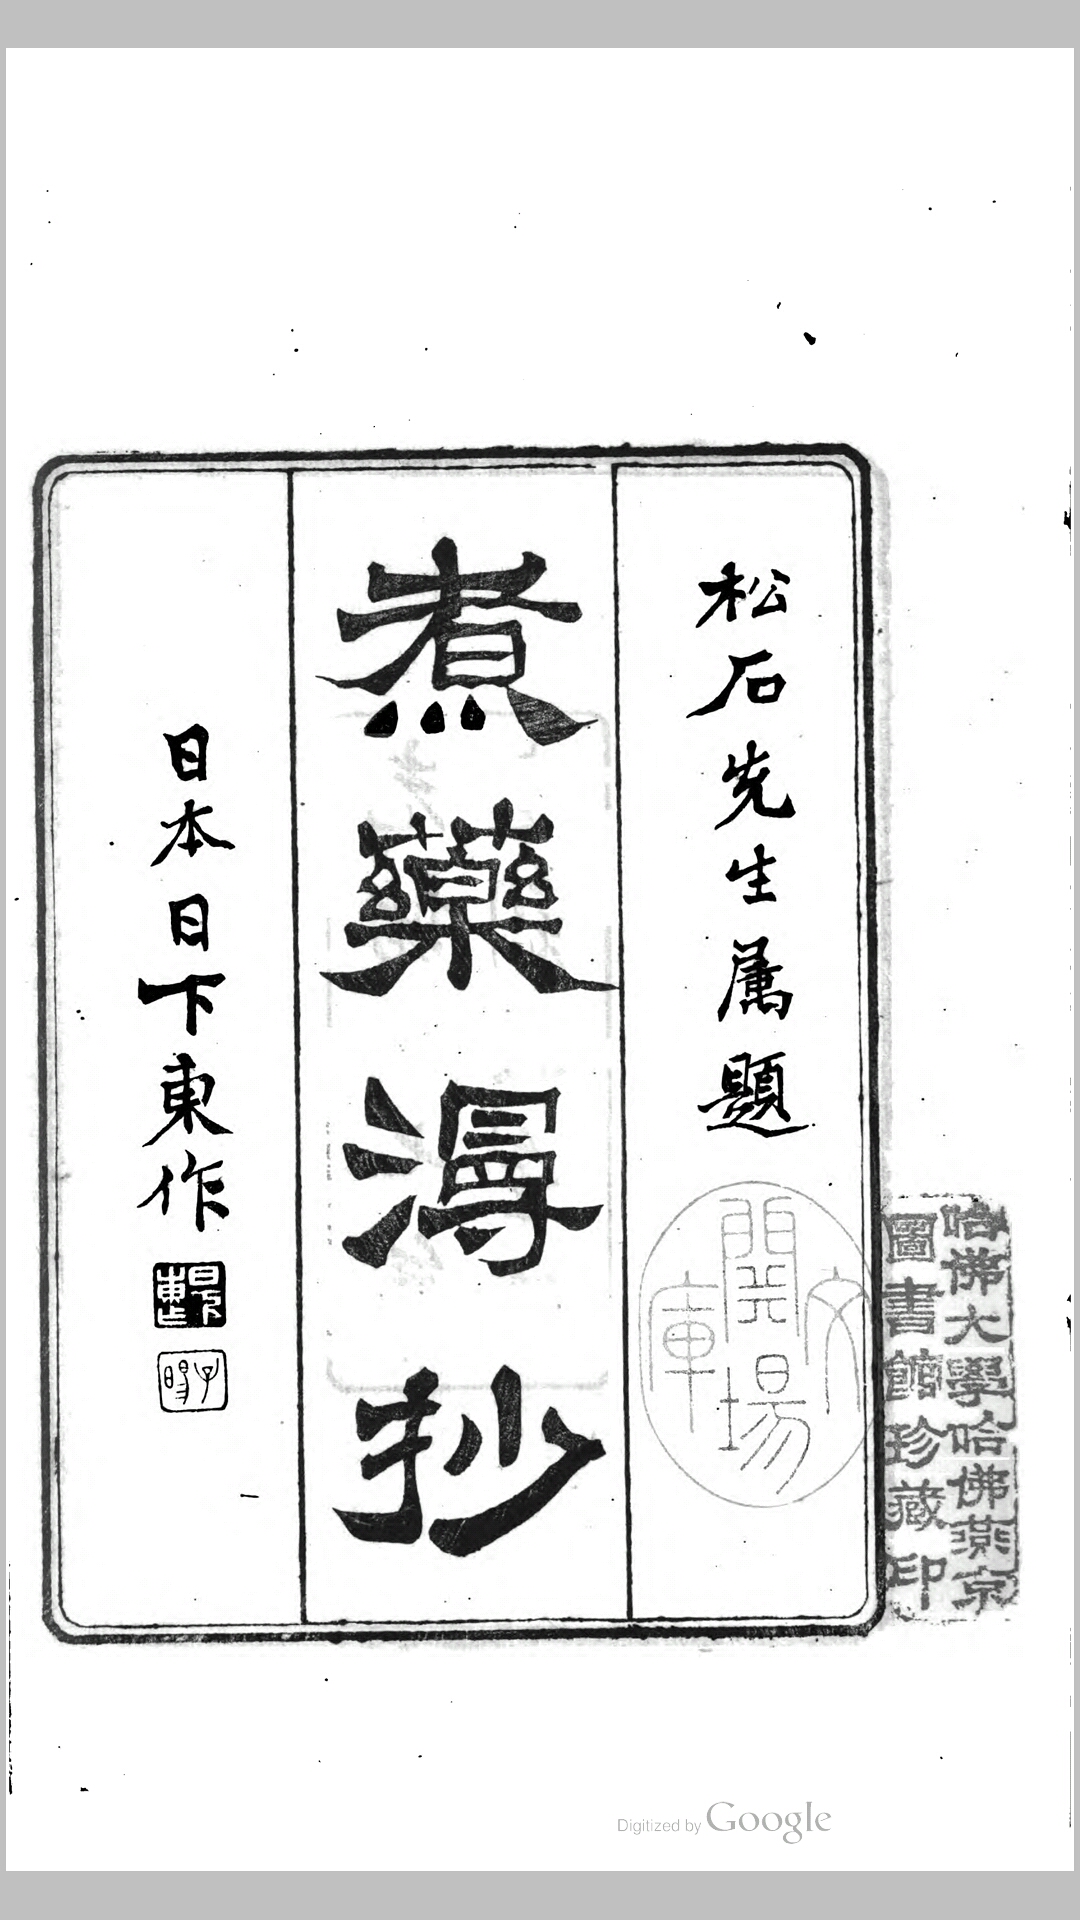 松石先生属題
煮藥漫抄
日本日下東作
日下東作
子暘
開場文庫
哈佛大學哈佛燕京
圖書館珍藏印
Digitized by Google